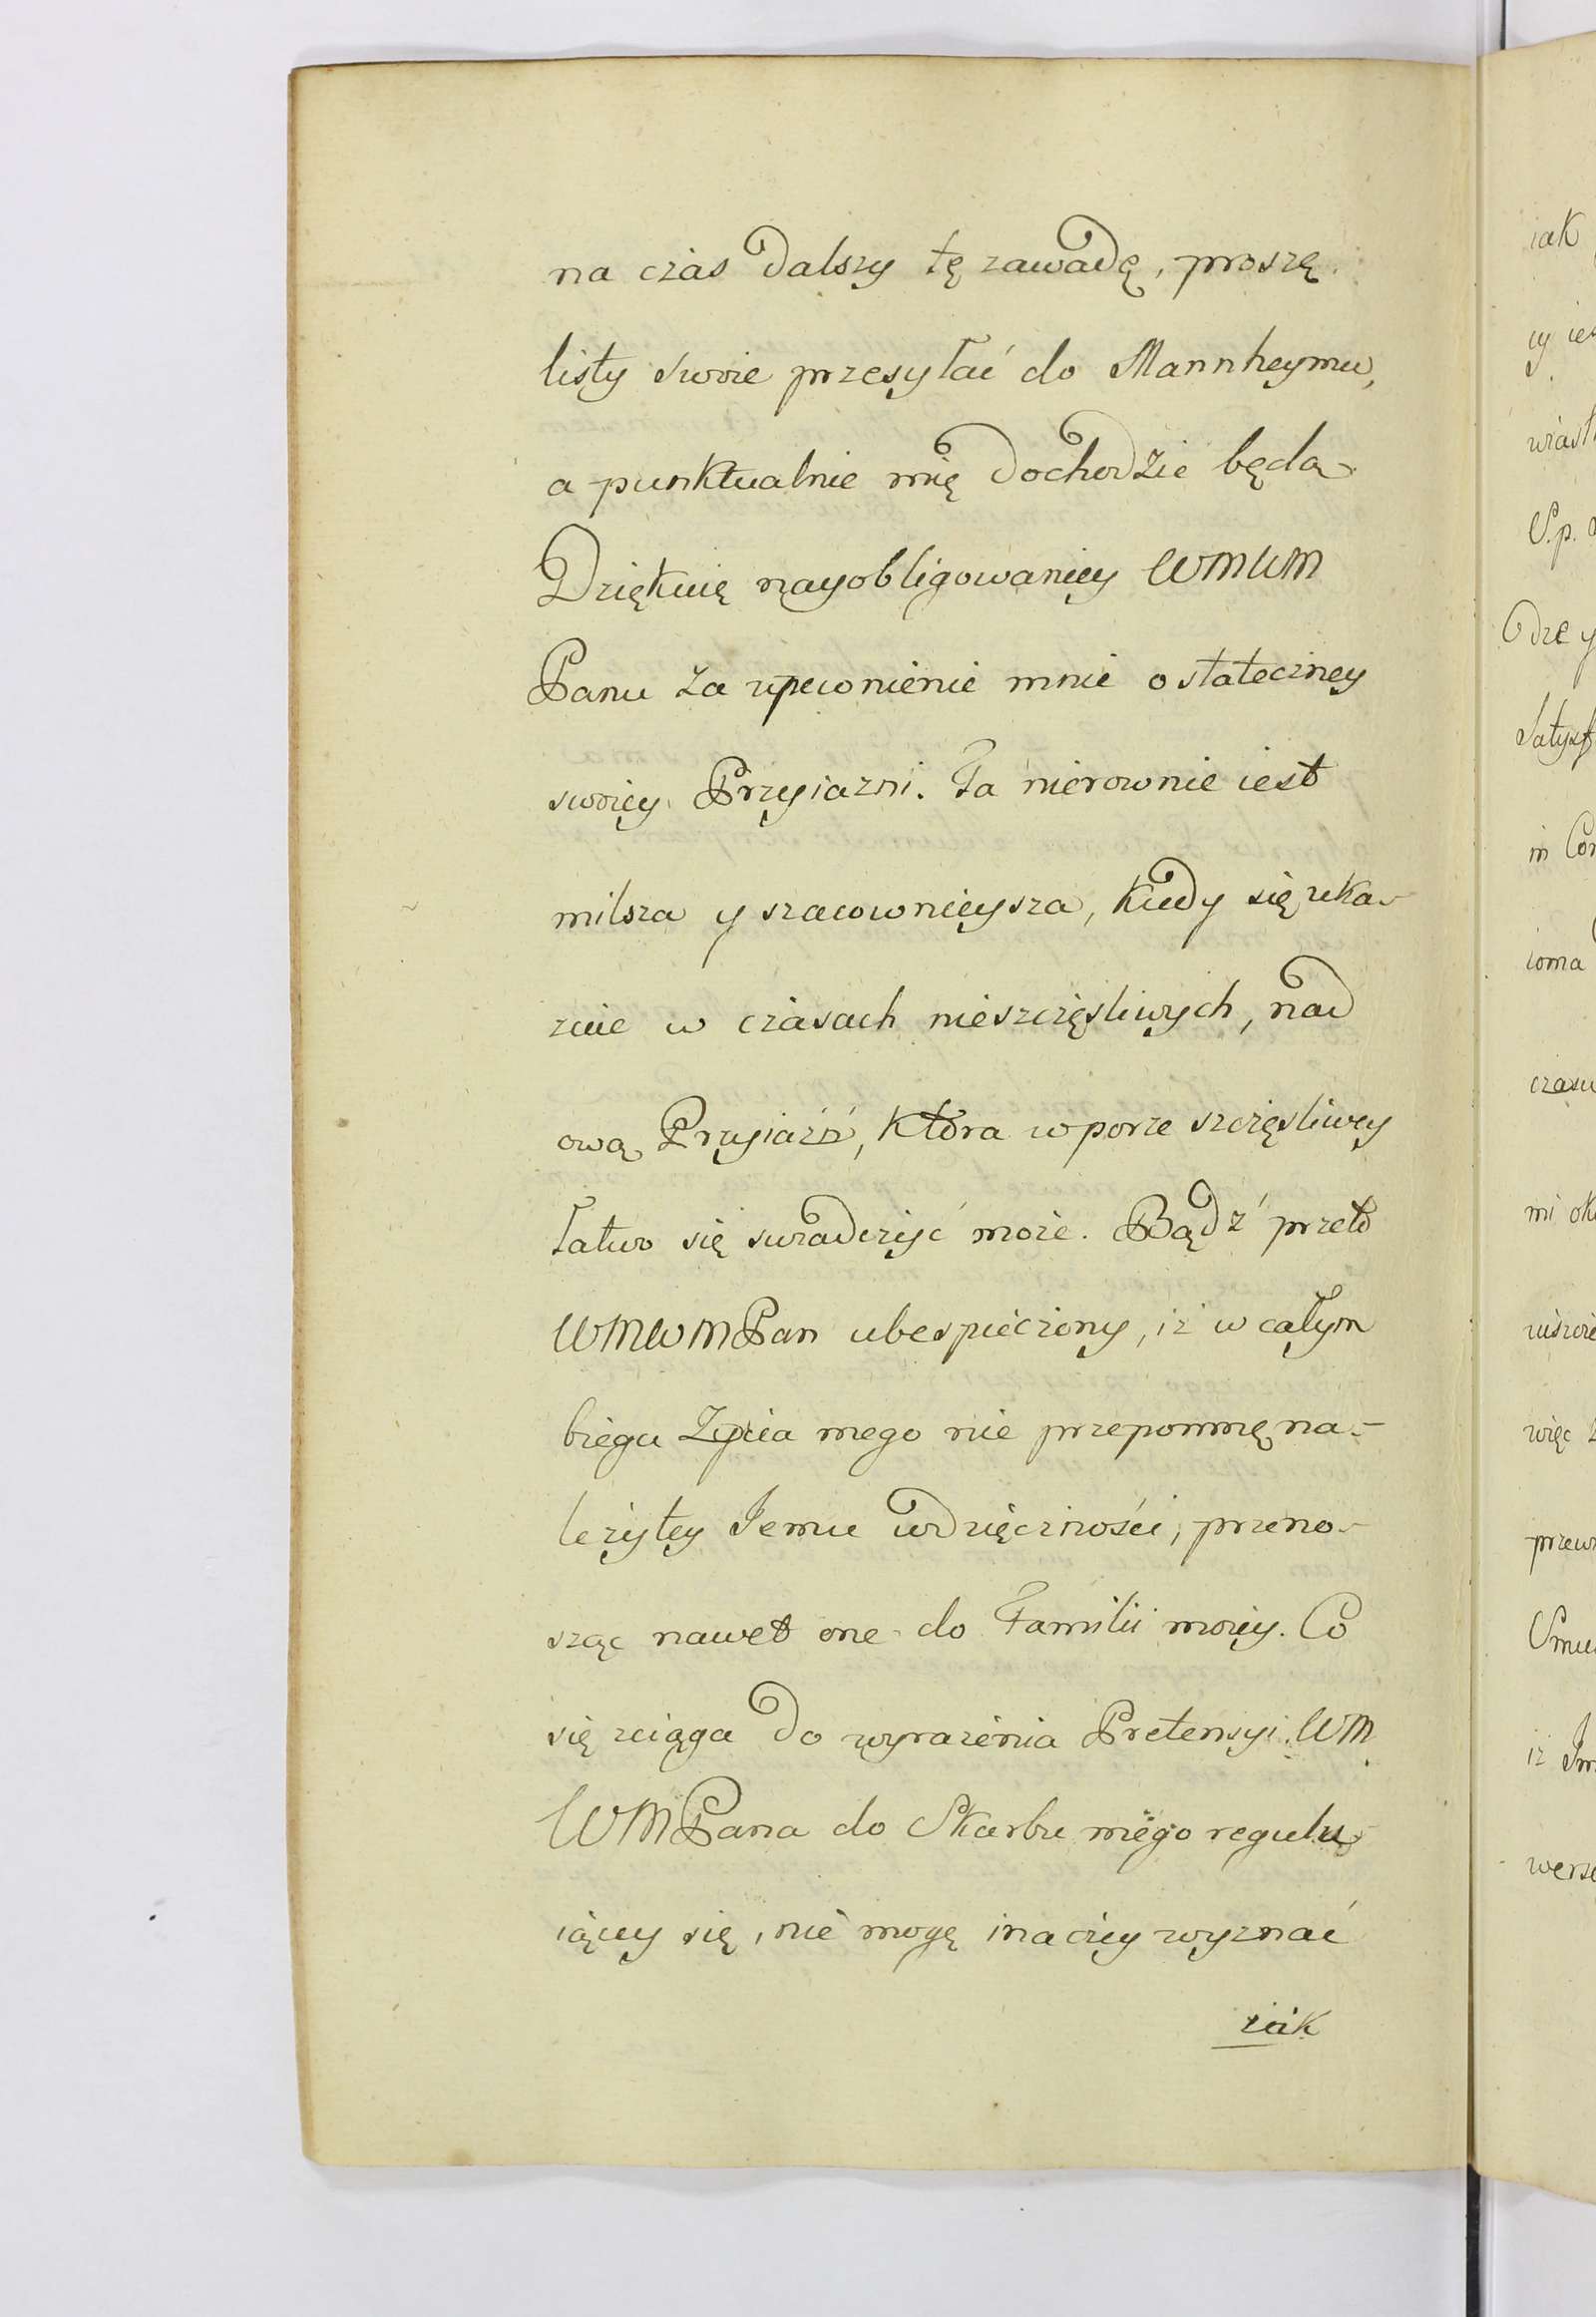 na czas dalszy tę zawadę, proszę
listy swoie przesyłać do Mannheymu,
a punktualnie mię dochodzić będą
Dziękuię nayobligowaniey WMWM
Panu za upewnienie mnie o stateczney
swoiey Przyiazni. Ta nierownie iest
milsza y szacownieysza, kiedy się uka-
zuie w czasach nieszczęsliwych, nad
ową Przyiaźń, ktora w porze szczęsliwey
łatwo się swiadczyć może. Bądź przeto
WMWMPan ubespieczony, iż w całym
biegu Życia mego nie przepomnę na-
leżytey Jemu wdzięczności, przeno-
sząc nawet one do Familii moiey. Co
się sciąga do wyrażenia Pretensyi WM
WMPana do Skarbu mego regulu-
iącey się, nie mogę inaczey wyznać
iak
iak
cy ies
wiast
S.p.
Odze y
Satysf
in Con
ioma
czasu
mi ok
uiszcze
więc
przew
Smu
iż Im
werse